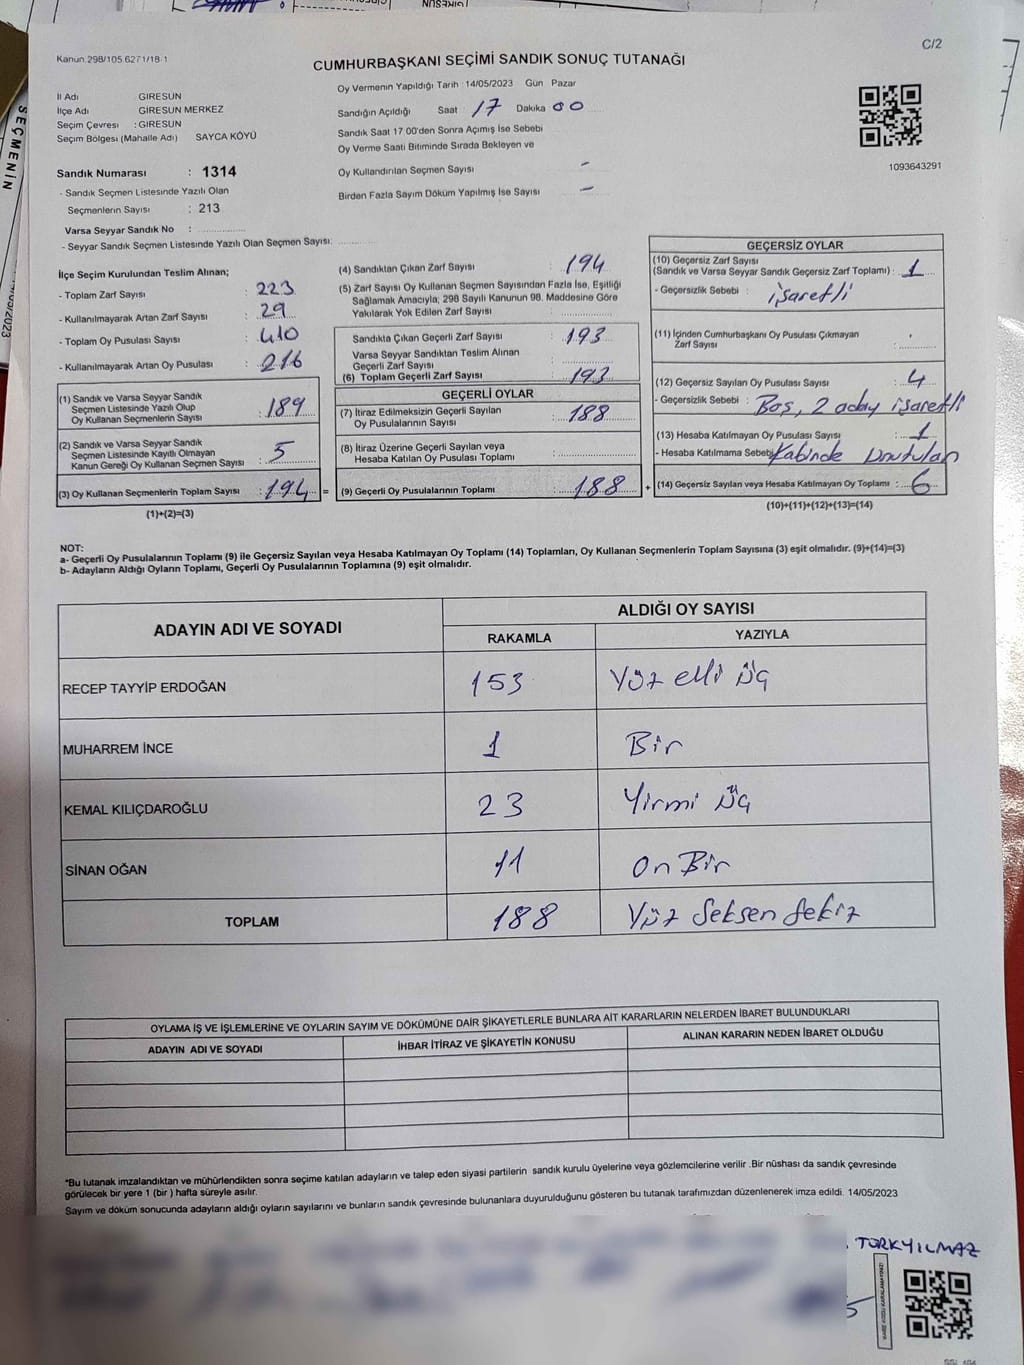 GİRESUN
SEÇMENİN
/05/2023
C/2
Kanun.298/105.6271/18-1
CUMHURBAŞKANI SEÇİMİ SANDIK SONUÇ TUTANAĞI
İl Adı GİRESUN
İlçe Adı GİRESUN MERKEZ
Seçim Çevresi : GİRESUN
Seçim Bölgesi (Mahalle Adı) SAYCA KÖYÜ
Sandık Numarası : 1314
- Sandık Seçmen Listesinde Yazılı Olan
Seçmenlerin Sayısı : 213
Varsa Seyyar Sandık No :
- Seyyar Sandık Seçmen Listesinde Yazılı Olan Seçmen Sayısı:
Oy Vermenin Yapıldığı Tarih 14/05/2023 Gün Pazar
Sandığın Açıldığı Saat 17 Dakika 00
Sandık Saat 17 00'den Sonra Açımış İse Sebebi
Oy Verme Saati Bitiminde Sırada Bekleyen ve
Oy Kullandırılan Seçmen Sayısı -
Birden Fazla Sayım Döküm Yapılmış İse Sayısı -
1093643291
İlçe Seçim Kurulundan Teslim Alınan;
- Toplam Zarf Sayısı : 223
- Kullanılmayarak Artan Zarf Sayısı : 29
- Toplam Oy Pusulası Sayısı : 410
- Kullanılmayarak Artan Oy Pusulası : 216
(1) Sandık ve Varsa Seyyar Sandık
Seçmen Listesinde Yazılı Olup
Oy Kullanan Seçmenlerin Sayısı : 189
(2) Sandık ve Varsa Seyyar Sandık
Seçmen Listesinde Kayıtlı Olmayan
Kanun Gereği Oy Kullanan Seçmen Sayısı : 5
(3) Oy Kullanan Seçmenlerin Toplam Sayısı : 194 =
(1)+(2)=(3)
(4) Sandıktan Çıkan Zarf Sayısı : 194
(5) Zarf Sayısı Oy Kullanan Seçmen Sayısından Fazla İse, Eşitliği
Sağlamak Amacıyla, 298 Sayılı Kanunun 98. Maddesine Göre
Yakılarak Yok Edilen Zarf Sayısı :
Sandıkta Çıkan Geçerli Zarf Sayısı : 193
Varsa Seyyar Sandıktan Teslim Alınan
Geçerli Zarf Sayısı :
(6) Toplam Geçerli Zarf Sayısı : 193
GEÇERLİ OYLAR
(7) İtiraz Edilmeksizin Geçerli Sayılan
Oy Pusulalarının Sayısı : 188
(8) İtiraz Üzerine Geçerli Sayılan veya
Hesaba Katılan Oy Pusulası Toplamı :
(9) Geçerli Oy Pusulalarının Toplamı : 188 +
GEÇERSİZ OYLAR
(10) Geçersiz Zarf Sayısı
(Sandık ve Varsa Seyyar Sandık Geçersiz Zarf Toplamı) : 1
- Geçersizlik Sebebi : işaretli
(11) İçinden Cumhurbaşkanı Oy Pusulası Çıkmayan
Zarf Sayısı :
(12) Geçersiz Sayılan Oy Pusulası Sayısı : 4
- Geçersizlik Sebebi : Boş, 2 aday işaretli
(13) Hesaba Katılmayan Oy Pusulası Sayısı : 1
- Hesaba Katılmama Sebebi Kabinde Unutulan
(14) Geçersiz Sayılan veya Hesaba Katılmayan Oy Toplamı : 6
(10)+(11)+(12)+(13)=(14)
NOT:
a- Geçerli Oy Pusulalarının Toplamı (9) ile Geçersiz Sayılan veya Hesaba Katılmayan Oy Toplamı (14) Toplamları, Oy Kullanan Seçmenlerin Toplam Sayısına (3) eşit olmalıdır. (9)+(14)=(3)
b- Adayların Aldığı Oyların Toplamı, Geçerli Oy Pusulalarının Toplamına (9) eşit olmalıdır.
ADAYIN ADI VE SOYADI ALDIĞI OY SAYISI
RAKAMLA YAZIYLA
RECEP TAYYİP ERDOĞAN 153 Yüz elli üç
MUHARREM İNCE 1 Bir
KEMAL KILIÇDAROĞLU 23 Yirmi üç
SİNAN OĞAN 11 On Bir
TOPLAM 188 Yüz Seksen Sekiz
OYLAMA İŞ VE İŞLEMLERİNE VE OYLARIN SAYIM VE DÖKÜMÜNE DAİR ŞİKAYETLERLE BUNLARA AİT KARARLARIN NELERDEN İBARET BULUNDUKLARI
ADAYIN ADI VE SOYADI İHBAR İTİRAZ VE ŞİKAYETİN KONUSU ALINAN KARARIN NEDEN İBARET OLDUĞU
*Bu tutanak imzalandıktan ve mühürlendikten sonra seçime katılan adayların ve talep eden siyasi partilerin sandık kurulu üyelerine veya gözlemcilerine verilir .Bir nüshası da sandık çevresinde
görülecek bir yere 1 (bir ) hafta süreyle asılır.
Sayım ve döküm sonucunda adayların aldığı oyların sayılarını ve bunların sandık çevresinde bulunanlara duyurulduğunu gösteren bu tutanak tarafımızdan düzenlenerek imza edildi. 14/05/2023
TÜRKYILMAZ